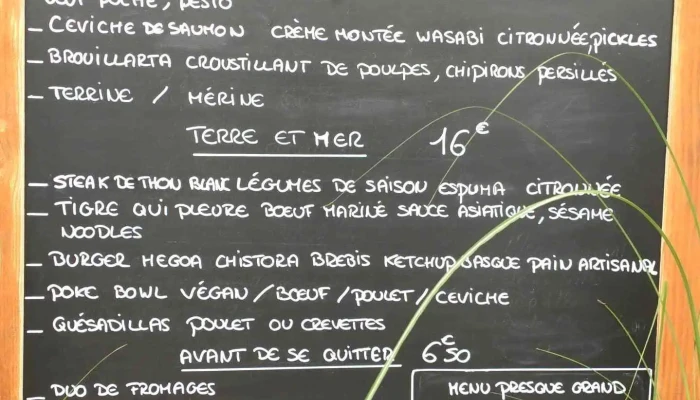 OEUF POCHÉ, PESTO
- CEVICHE DE SAUMON CRÈME MONTÉE WASABI CITRONNÉE, PICKLES
- BROUILLARTA CROUSTILLANT DE POULPES, CHIPIRONS PERSILLÉS
- TERRINE / MÉRINE
TERRE ET MER 16€
- STEAK DE THON BLANC LÉGUMES DE SAISON ESPUMA CITRONNÉE
- TIGRE QUI PLEURE BOEUF MARINÉ SAUCE ASIATIQUE, SÉSAME
NOODLES
- BURGER HEGOA CHISTORA BREBIS KETCHUP BASQUE PAIN ARTISANAL
- POKE BOWL VÉGAN / BŒUF / POULET / CEVICHE
- QUÉSADILLAS POULET OU CREVETTES
AVANT DE SE QUITTER 6€50
- DUO DE FROMAGES
MENU PRESQUE GRAND